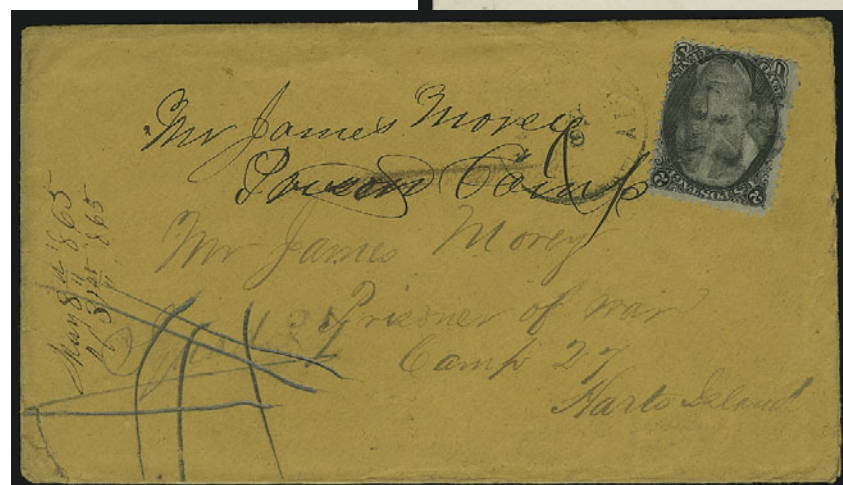 Mr James Morey
Prison Camp
Mr James Morey
Prisoner of war
Camp 27
Harts Island
May 8th 1865
31st 1865